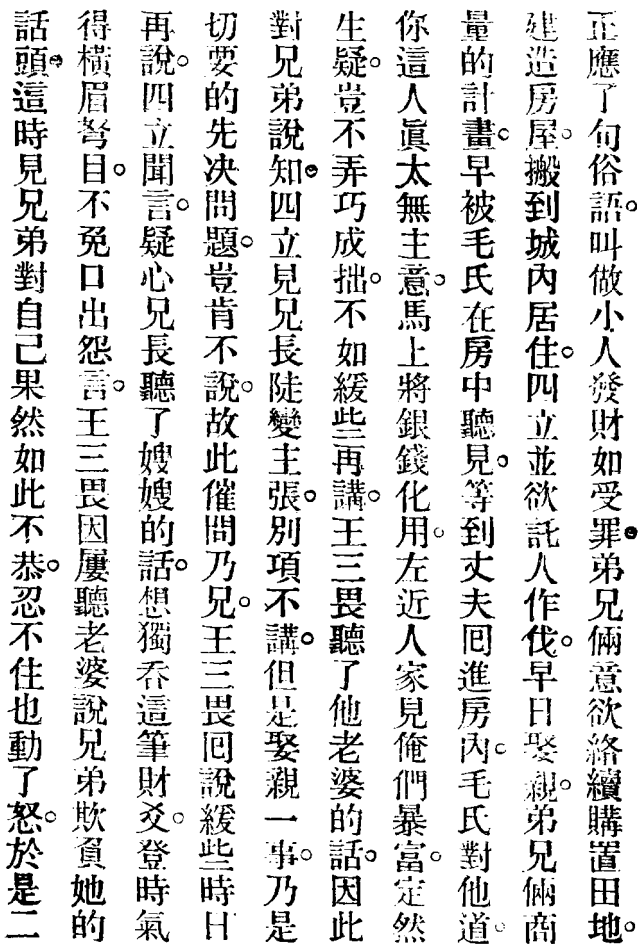 正應了句俗語。叫做小人發財如受罪。弟兄倆意欲絡續購置田地。
建造房屋。搬到城內居住。四立並欲託人作伐。早日娶親。弟兄倆商
量的計畫。早被毛氏在房中聽見。等到丈夫囘進房內。毛氏對他道。
你這人眞太無主意。馬上將銀錢化用。左近人家見俺們暴富。定然
生疑。豈不弄巧成拙。不如緩些再講。王三畏聽了他老婆的話。因此
對兄弟說知。四立見兄長陡變主張。別項不講。但是娶親一事。乃是
切要的先決問題。豈肯不說。故此催問乃兄。王三畏囘說緩些時日
再說。四立聞言。疑心兄長聽了嫂嫂的話。想獨吞這筆財爻。登時氣
得橫眉弩目。不免口出怨言。王三畏因屢聽老婆說兄弟欺負她的
話頭。這時見兄弟對自己果然如此不恭。忍不住也動了怒。於是二